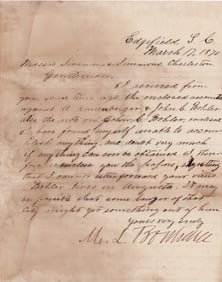 Edgefield, S. C.
March 17, 1870
Messrs Simons and Simmons, Charleston
Gentlemen
I received from
you some time ago, the enclosed accounts
against
& John C. Kohler
also the note on John C. Kohler, enclosed
I have found myself unable to accom-
plish anything, and doubt very much
if anything can ever be obtained. I there-
fore enclose you the papers, regretting
that I cannot
forward your
Kohler lives in Augusta. It may
be found that some lawyer of that
city might get something out of him.
Yours very truly
M. L. Bonham